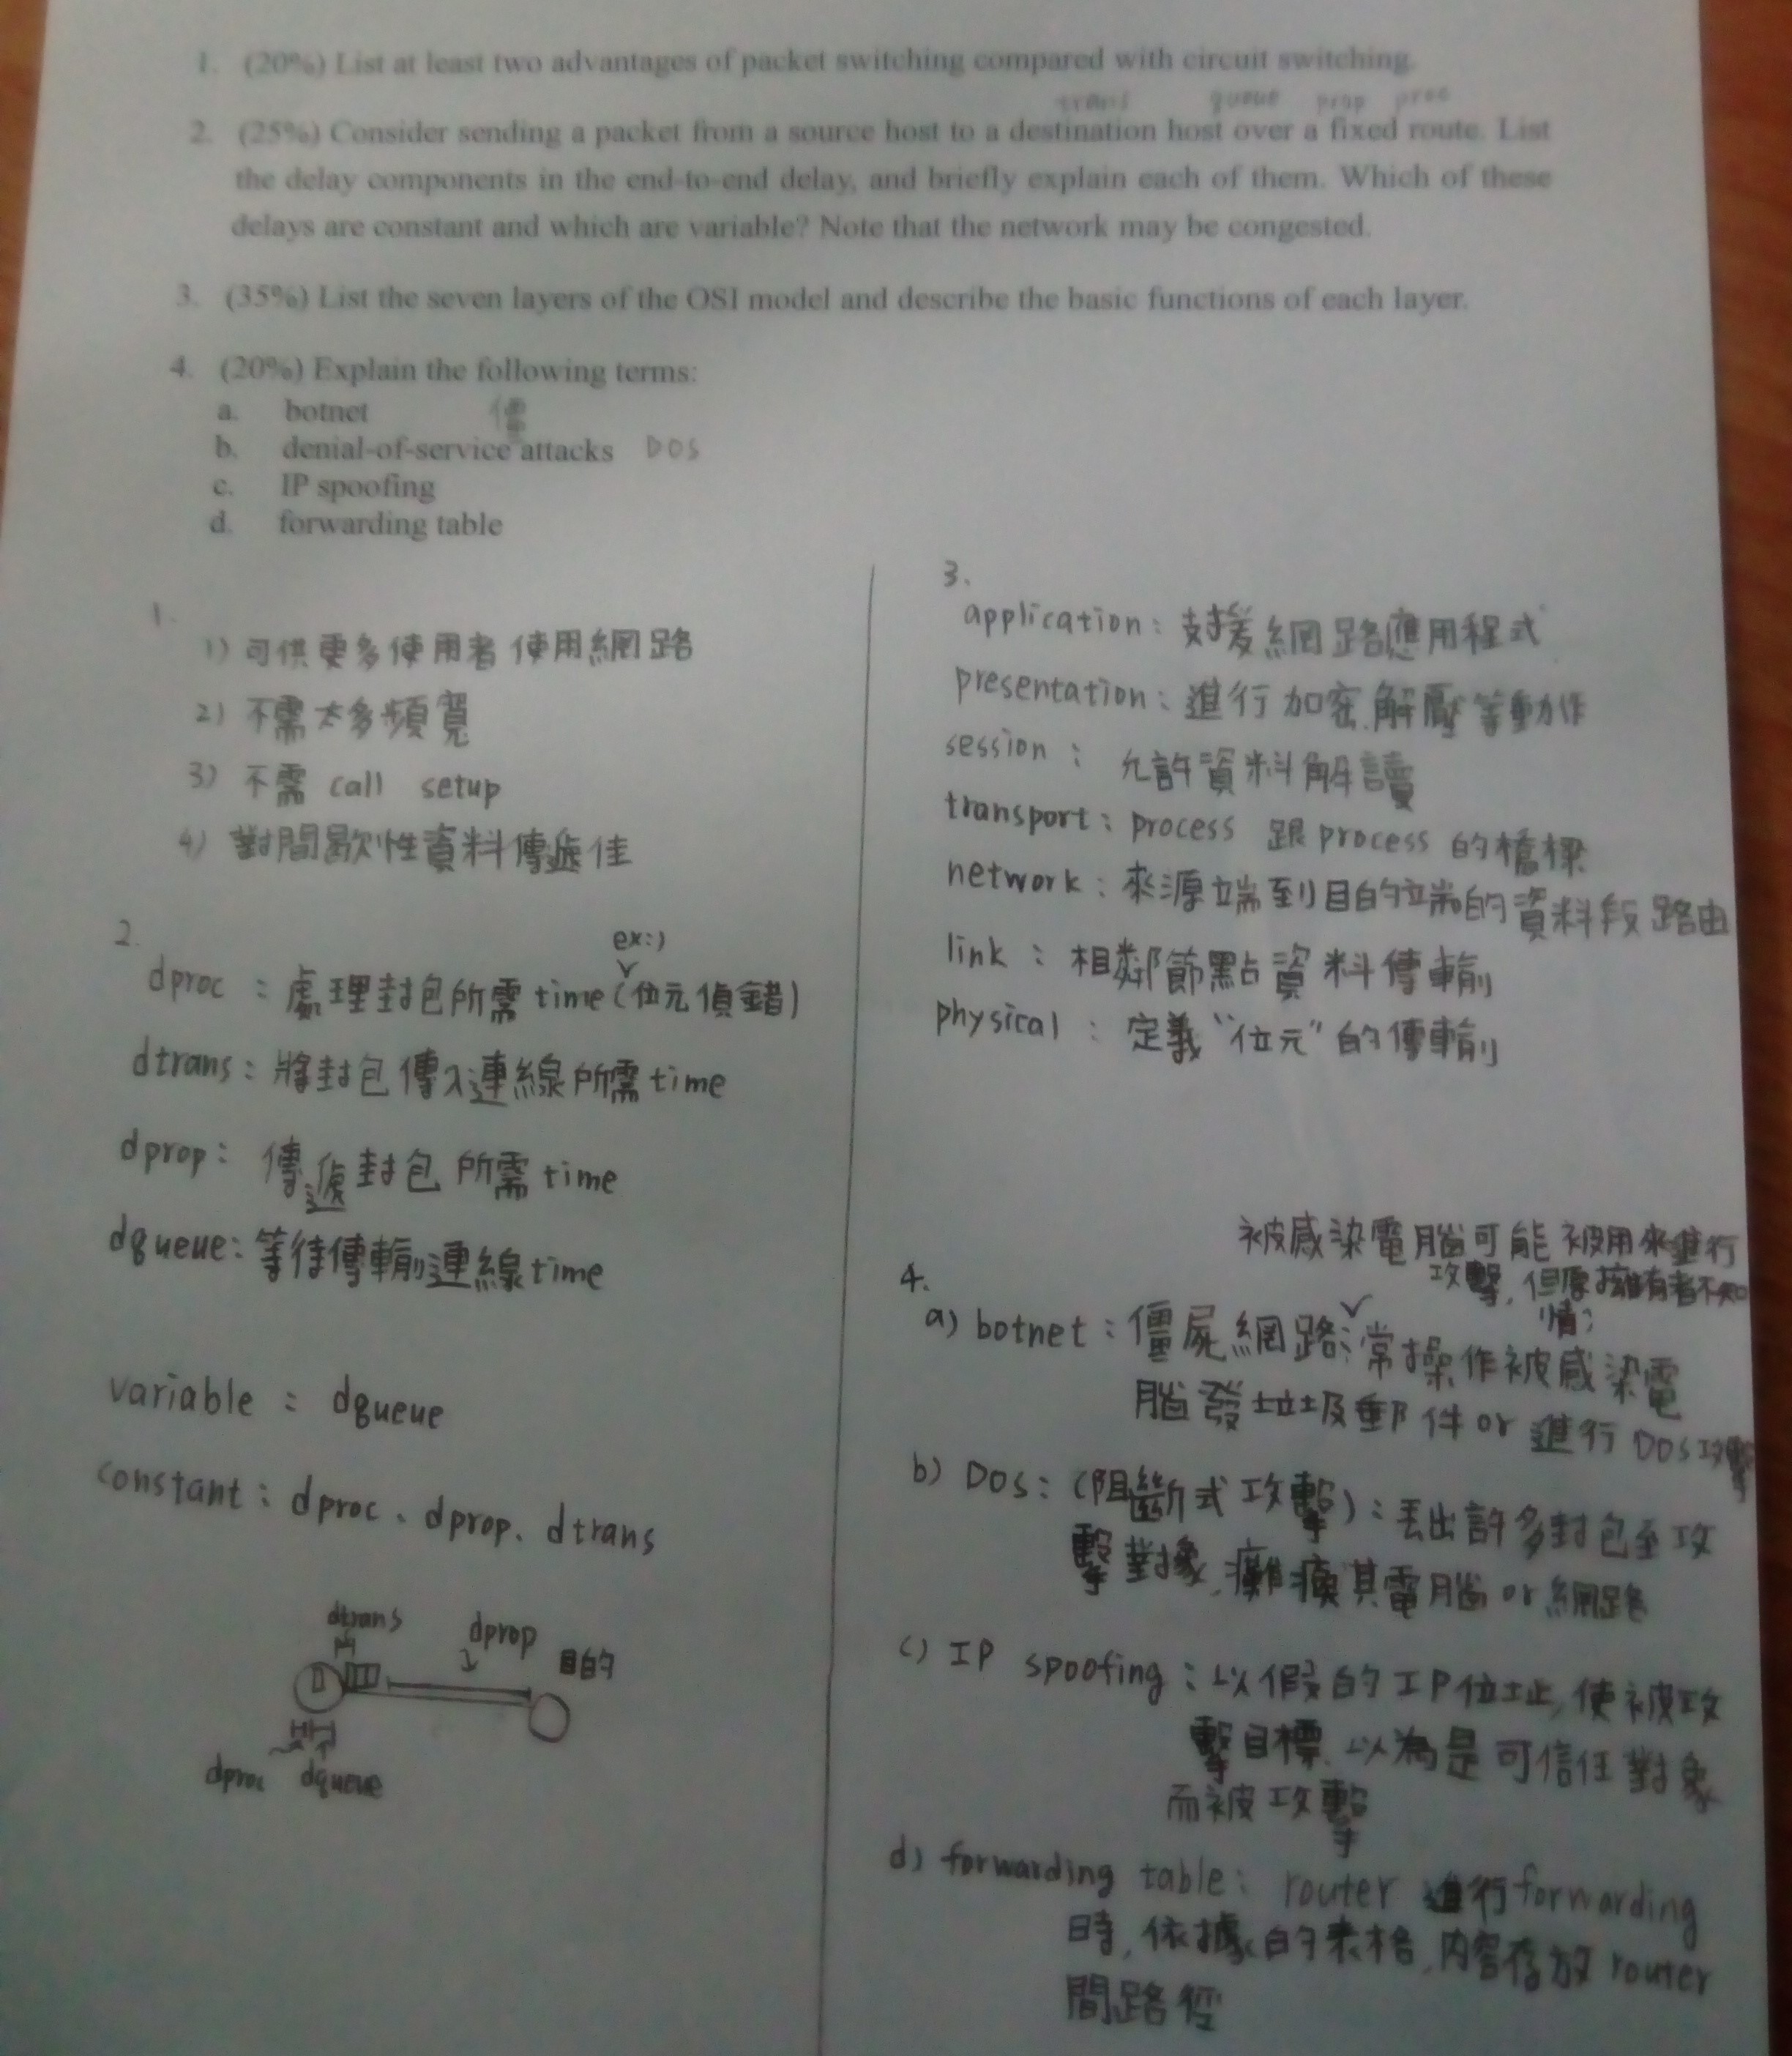 1. (20%) List at least two advantages of packet switching compared with circuit switching.
trans queue prop proc
2. (25%) Consider sending a packet from a source host to a destination host over a fixed route. List
the delay components in the end-to-end delay, and briefly explain each of them. Which of these
delays are constant and which are variable? Note that the network may be congested.
3. (35%) List the seven layers of the OSI model and describe the basic functions of each layer.
4. (20%) Explain the following terms:
a. botnet 僵
b. denial-of-service attacks DOS
c. IP spoofing
d. forwarding table
1.
1) 可供更多使用者使用網路
2) 不需太多頻寬
3) 不需 call setup
4) 對間歇性資料傳遞佳
2.
ex:)
dproc : 處理封包所需 time (位元偵錯)
dtrans: 將封包傳入連線所需 time
dprop: 傳遞封包所需 time
dqueue: 等待傳輸連線 time
variable : dqueue
constant : dproc、dprop、dtrans
dtrans
dprop
目的
dproc dqueue
3.
application: 支援網路應用程式
presentation: 進行加密、解壓等動作
session : 允許資料解讀
transport: process 跟 process 的橋樑
network: 來源端到目的端的資料段路由
link : 相鄰節點資料傳輸
physical : 定義“位元”的傳輸
4.
被感染電腦可能被用來進行
攻擊, 但原擁有者不知
情;
a) botnet: 僵屍網路; 常操作被感染電
腦發垃圾郵件 or 進行 DOS 攻擊
b) DOS: (阻斷式攻擊): 丟出許多封包至攻
擊對象, 癱瘓其電腦 or 網路
c) IP spoofing: 以假的 IP 位址, 使被攻
擊目標、以為是可信任對象
而被攻擊
d) forwarding table: router 進行 forwarding
時, 依據的表格, 內容存放 router
間路徑